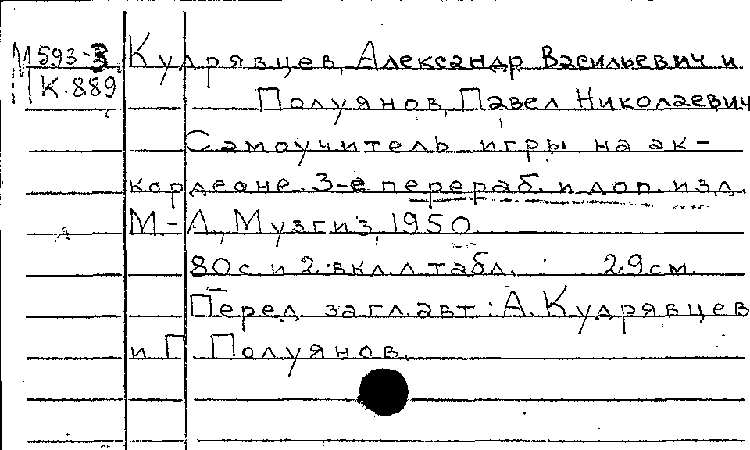 М 593-3 Кудрявцев, Александр Васильевич и
К.889 Полуянов, Павел Николаевич
Самоучитель игры на ак-
кордеоне. 3-е перераб. и доп. изд.
М.-Л., Музгиз, 1950.
80 с. и 2 вкл. л. табл. 29 см.
Перед загл. авт.: А. Кудрявцев
и П. Полуянов.